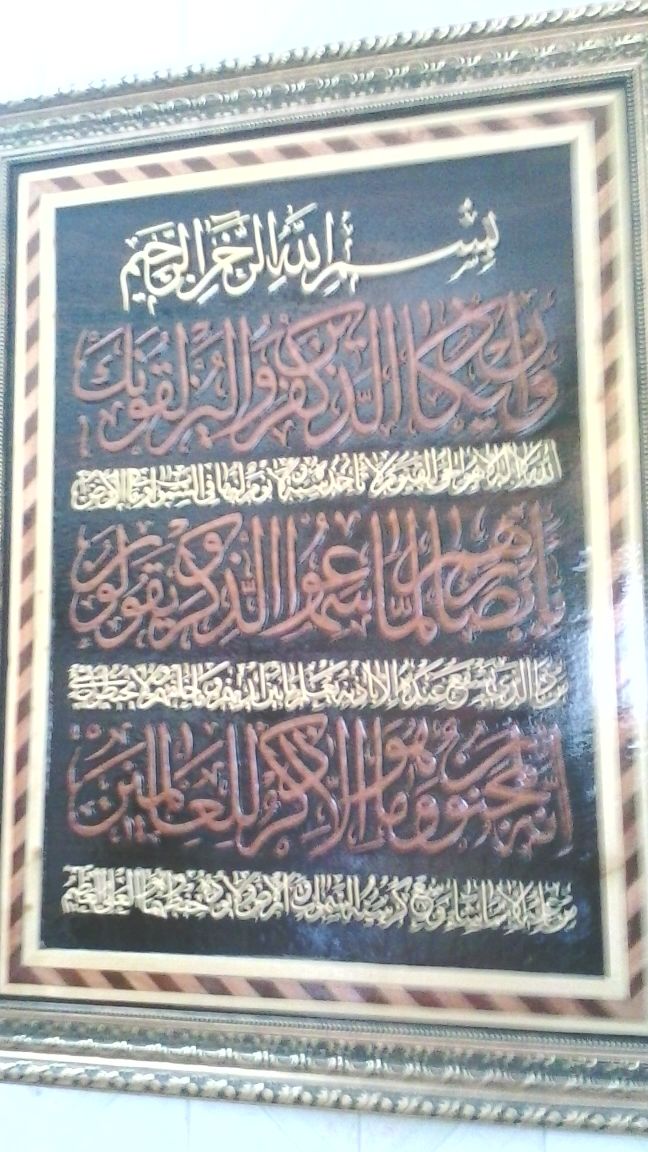 بسم الله الرحمن الرحيم
وإن يكاد الذين كفروا ليزلقونك
الله لا إله إلا هو الحي القيوم لا تأخذه سنة ولا نوم له ما في السموات وما في الأرض
بأبصارهم لما سمعوا الذكر ويقولون
من ذا الذي يشفع عنده إلا بإذنه يعلم ما بين أيديهم وما خلفهم ولا يحيطون بشيء
إنه لمجنون وما هو إلا ذكر للعالمين
من علمه إلا بما شاء وسع كرسيه السموات والأرض ولا يؤده حفظهما وهو العلي العظيم